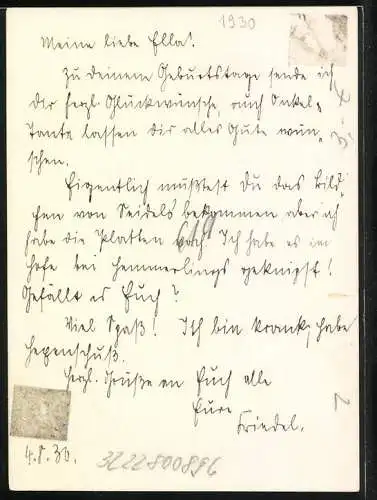 1930
Meine liebe Ella!
Zu deinem Geburtstage sende ich
dir herzl. Glückwünsche, auch Onkel,
Tante lassen dir alles Gute wün-
schen.
Eigentlich müßtest Du das Bild-
chen von Seidels bekommen, aber ich
habe die Platten noch. Ich habe es im
Hofe bei Hemmerlings geknipst!
Gefällt es Euch?
Viel Spaß! Ich bin krank, habe
Hexenschuß.
Herzl. Grüße an Euch alle
Eure
Friedel.
4.8.30.
3222800896